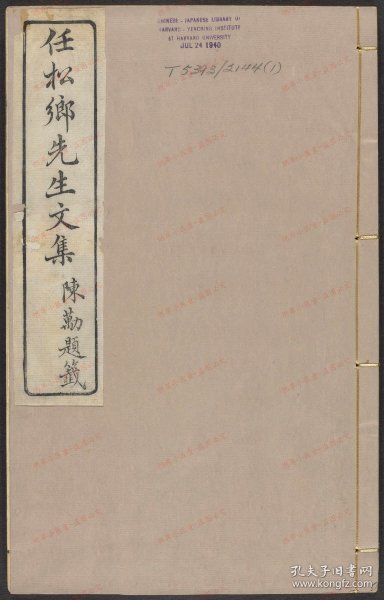 任松鄉先生文集
陳勱題籤
CHINESE - JAPANESE LIBRARY OF
HARVARD - YENCHING INSTITUTE
AT HARVARD UNIVERSITY
JUL 24 1940
T 5393/2144(1)
孔夫子旧书网
www.kongfz.com